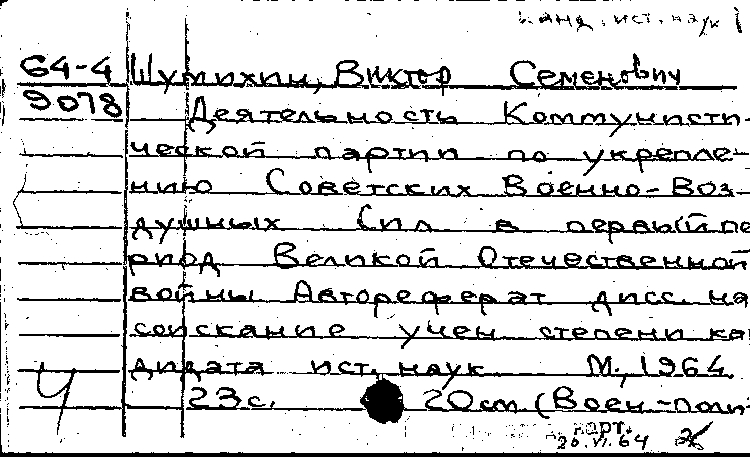 канд. ист. наук
64-4 Шумихин, Виктор Семенович
9078 Деятельность Коммунисти-
ческой партии по укрепле-
нию Советских Военно-Воз-
душных Сил в первый пе
риод Великой Отечественной
войны Автореферат дисс. на
соискание учен степени ка
дидата ист. наук М., 1964.
23с. 20см (Воен.-полит
карт.
Ч 26.VI.64